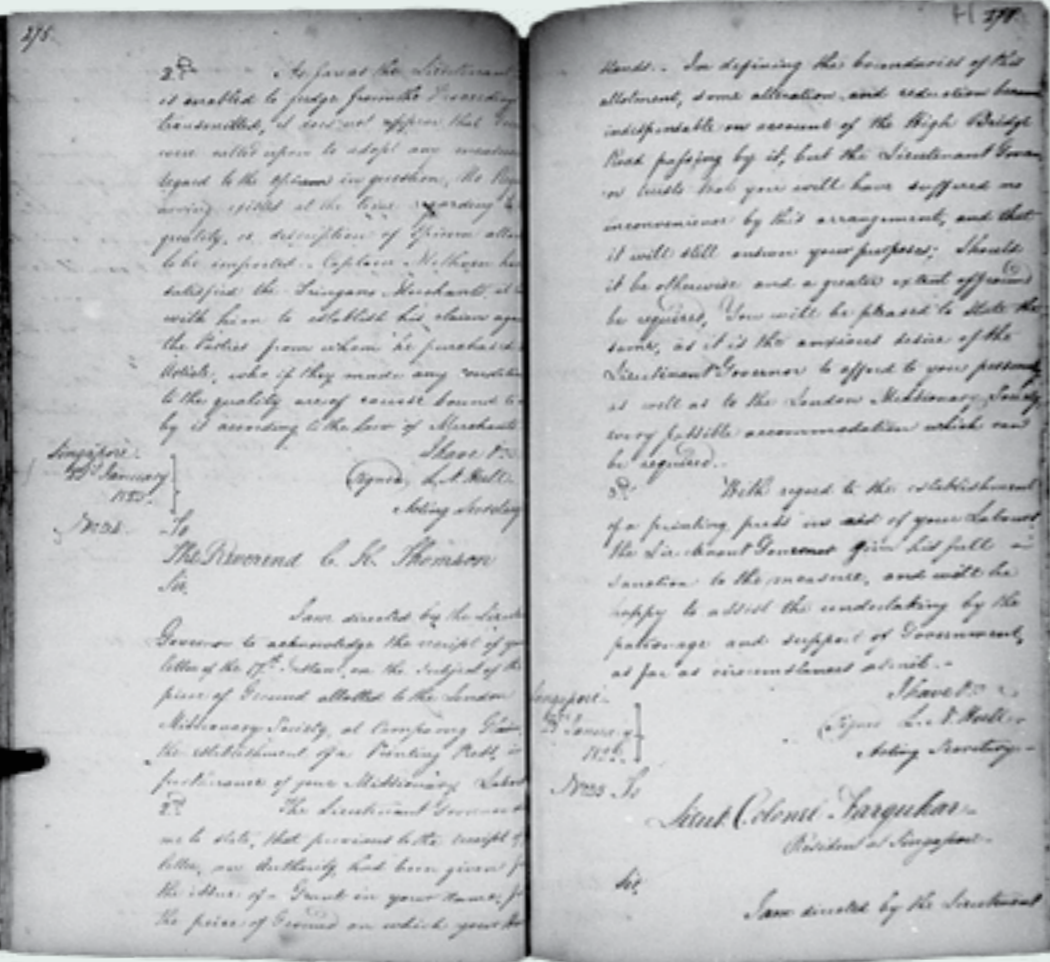 276.
2nd As far as the Lieutenant
is enabled to judge from the Proceedings
transmitted, it does not appear that
were called upon to adopt any
regard to the Opium in question, no
having existed at the time regarding
quality, or description of Opium
to be imported. Captain Methven
satisfied the Tringano Merchants, it
with him to establish his claim
the Parties from whom he purchased
Article, who if they made any
to the quality are of course bound to
by it according to the Law of Merchants
I have &c
(Signed) L. N. Hull
Acting Secretary
Singapore
January
1823.
To
The Reverend C. H. Thomson
Sir,
I am directed by the
Governor to acknowledge the receipt of
letter of the 17th Instant, on the subject of the
piece of Ground allotted to the London
Missionary Society, at Campong
the establishment of a Printing Press, in
furtherance of your Missionary
2nd The Lieutenant Governor
me to state, that previous to the receipt of
letter, an Authority had been given
the issue of a Grant in your Name,
the piece of Ground on which your
H 277.
stands. In defining the boundaries of this
allotment, some alteration and reduction became
indispensable on account of the High Bridge
Road passing by it, but the Lieutenant
or trusts that you will have suffered no
inconvenience by this arrangement, and that
it will still answer your purposes; Should
it be otherwise and a greater extent of ground
be required, You will be pleased to state the
same, as it is the anxious desire of the
Lieutenant Governor to afford to you personally
as well as to the London Missionary Society
every possible accommodation which can
be required.
3rd With regard to the establishment
of a printing press in aid of your Labours
the Lieutenant Governor gives his full
sanction to the measure, and will be
happy to assist the undertaking by the
patronage and support of Government,
as far as circumstances admit.
I have &c
(Signed L. N. Hull
Acting Secretary
Singapore
1823.
To
Lieut. Colonel Farquhar
Resident at Singapore
Sir,
I am directed by the Lieutenant